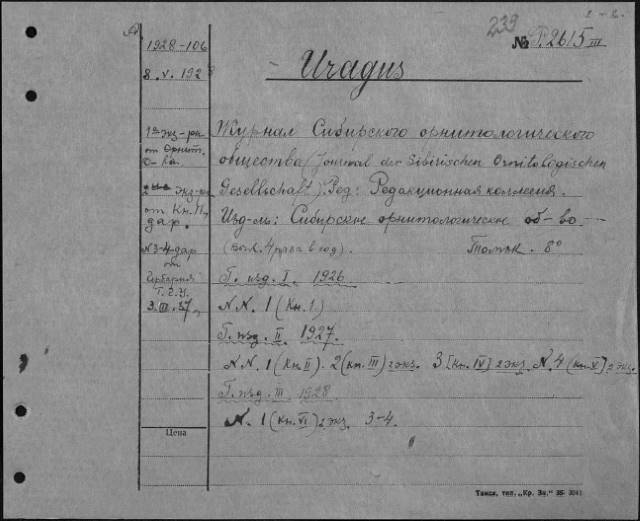 239
№ P.2615 III
1928-106
8.V.1928
Uragus
1й экз-р
от Орнит.
О-ва
Журнал Сибирского орнитологического
общества (Journal der Sibirischen Ornitologischen
2 экз-р
от Кн. П.
дар.
Gesellschaft). Ред: Редакционная коллегия.
Изд-ль: Сибирское орнитологическое об-во
N 3-4 дар
от
Гербария
Т.Г.У.
3.III.37
4 раза в год). Томск. 8°
Г. изд. I. 1926
N.N. 1 (Кн. 1.)
Г. изд. II. 1927.
N.N. 1 (Кн. II). 2 (кн. III) 2 экз. 3 [Кн. IV] 2 экз. N. 4 (кн. V) 2 экз.
Г. изд. III. 1928
N. 1 (Кн. VI) 2 экз. 3-4.
Цена
Томск. тип. „Кр. Зн." 35